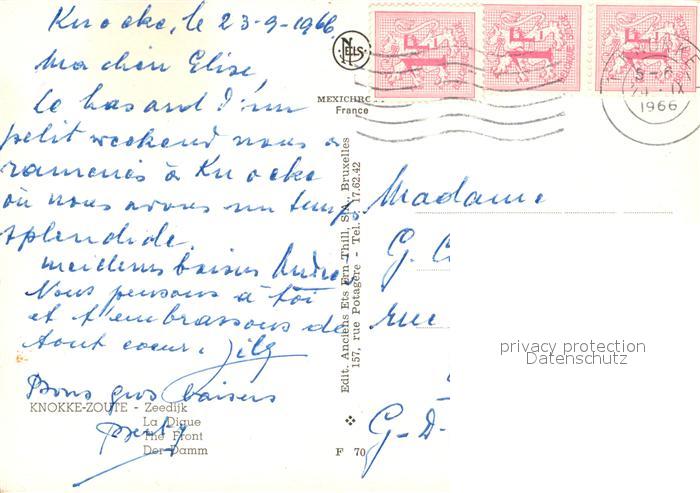 Knocke, le 23-9-1966
Ma chère Elise,
Le hasard d'un
petit weekend nous a
ramenés à Knocke
où nous avons un temps
splendide.
meilleurs baisers André
Nous pensons à toi
et t'embrassons de
tout coeur.
Bons gros baisers
KNOKKE-ZOUTE - Zeedijk
La Digue
The Front
Der Damm
NELS
MEXICHROME
France
Edit. Anciens Ets Ern. Thill, S.A., Bruxelles
157, rue Potagère - Tel. 17.62.42
F 70
1F
1F
1F
KNOKKE
1966
Madame
G.
rue
G-D-
privacy protection
Datenschutz